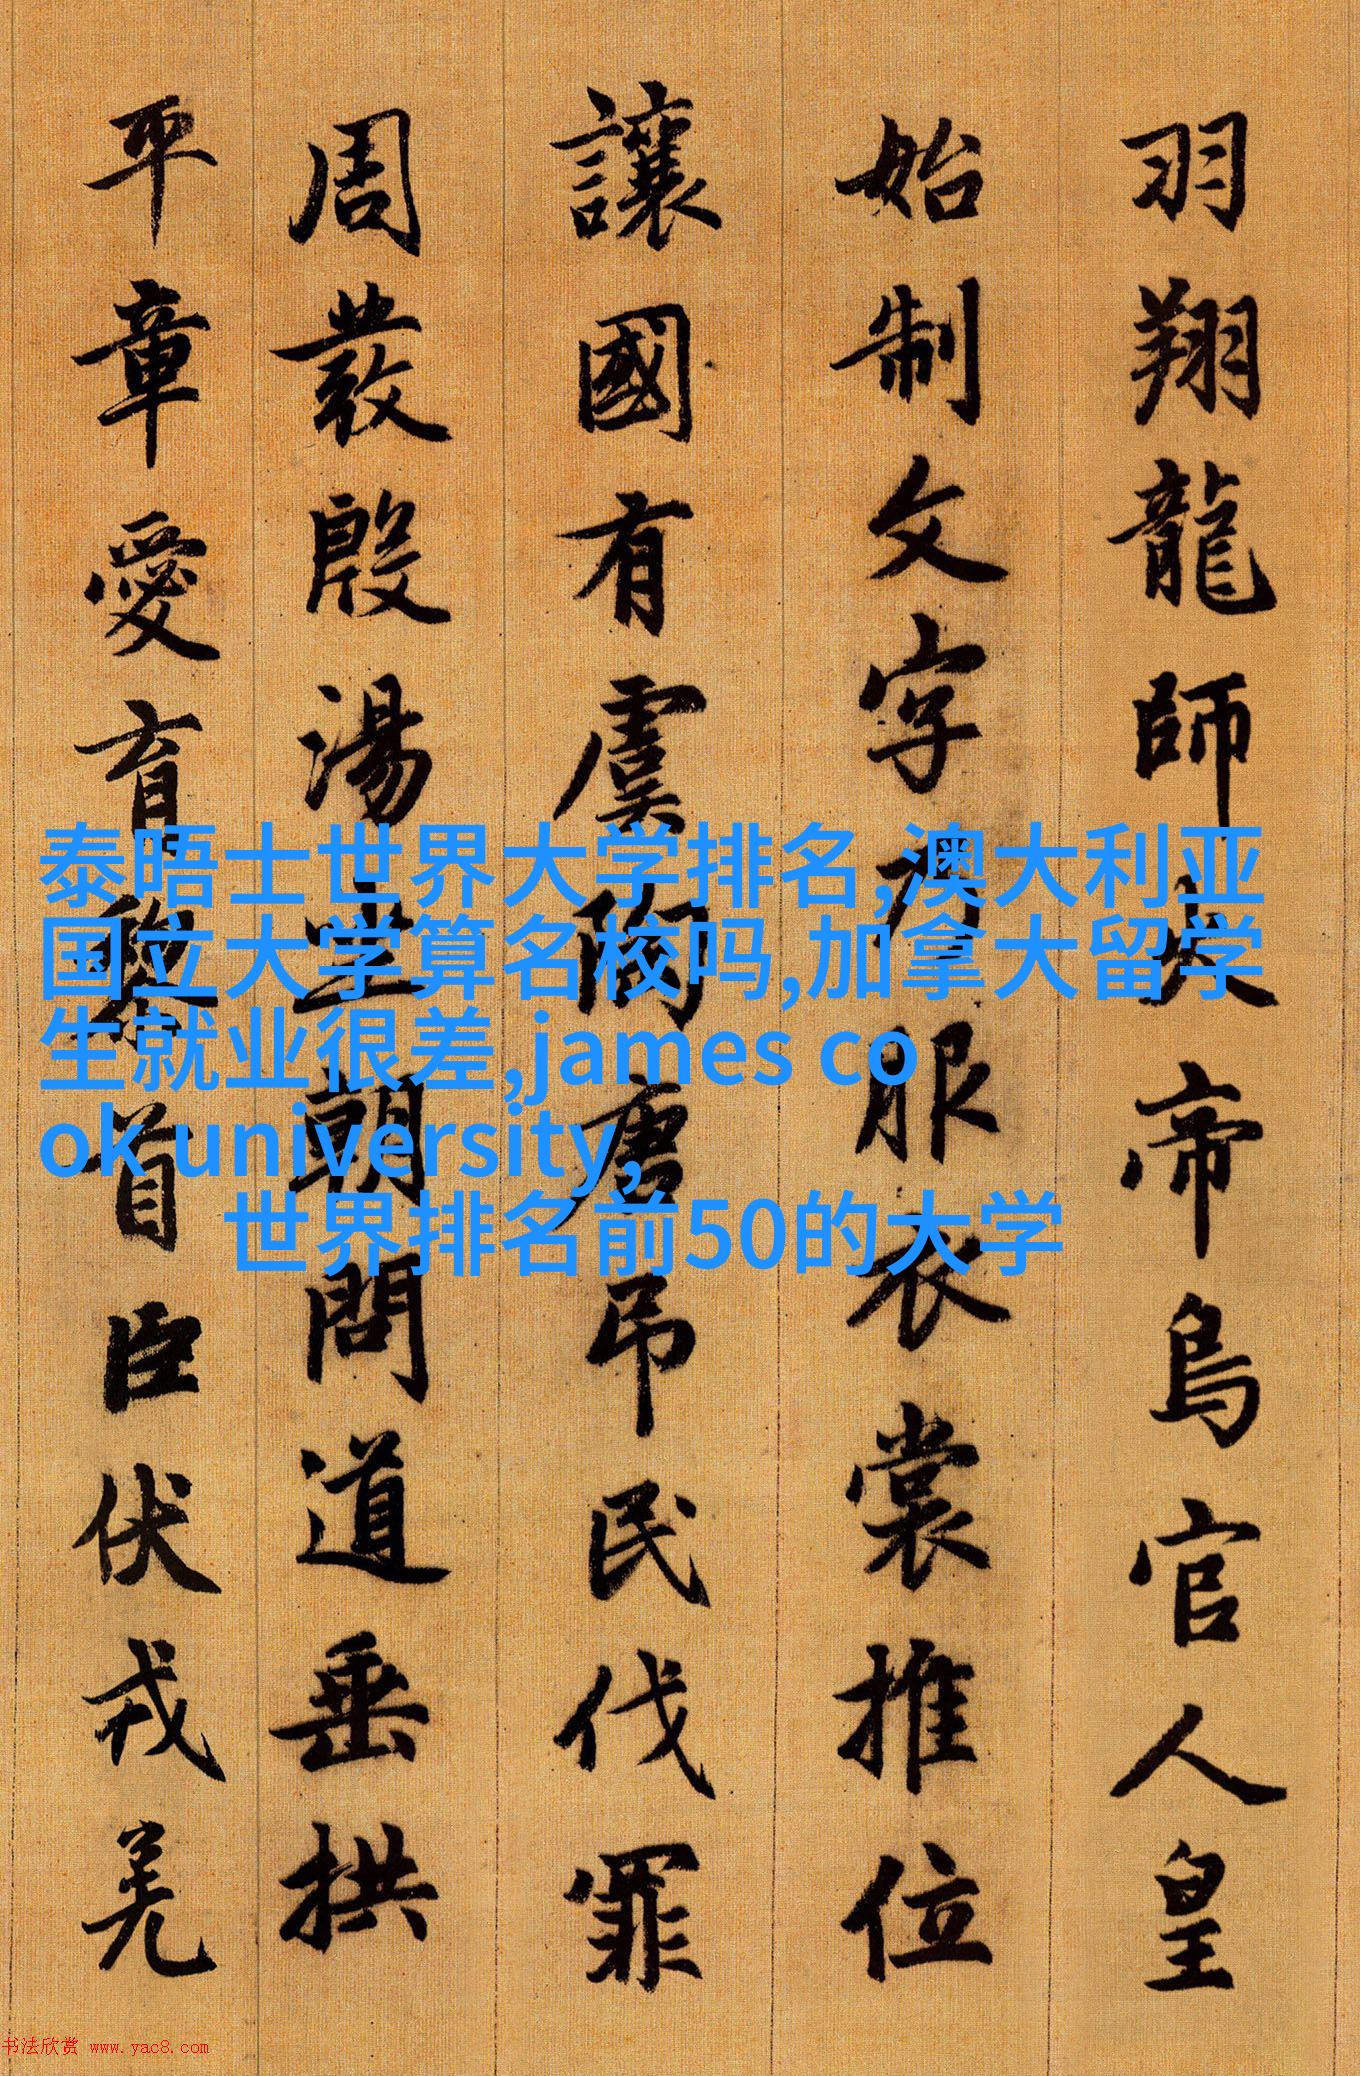 羽翔龍師火帝鳥官人皇
始制文字乃服衣裳推位
讓國有虞陶唐吊民伐罪
周發殷湯坐朝問道垂拱
平章愛育黎首臣伏戎羌
泰晤士世界大学排名,澳大利亚
国立大学算名校吗,加拿大留学
生就业很差,james co
ok university,
世界排名前50的大学
书法欣赏 www.yac8.com